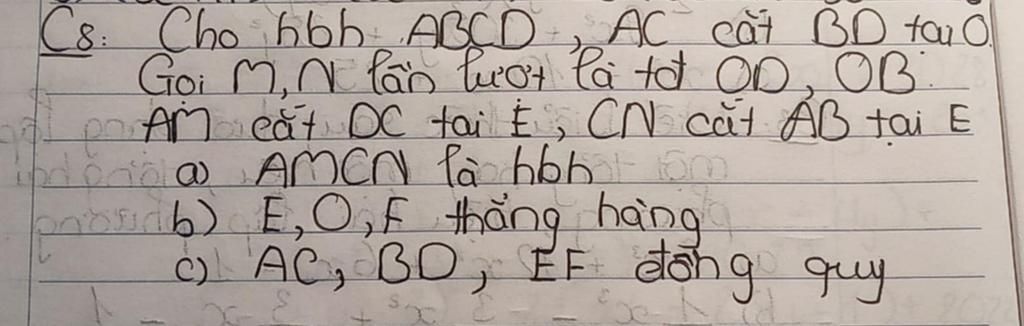 C8: Cho hbh ABCD, AC cắt BD tại O.
Gọi M, N lần lượt là tđ OD, OB.
AM cắt DC tại E, CN cắt AB tại E
a) AMCN là hbh
b) E, O, F thẳng hàng
c) AC, BD, EF đồng quy